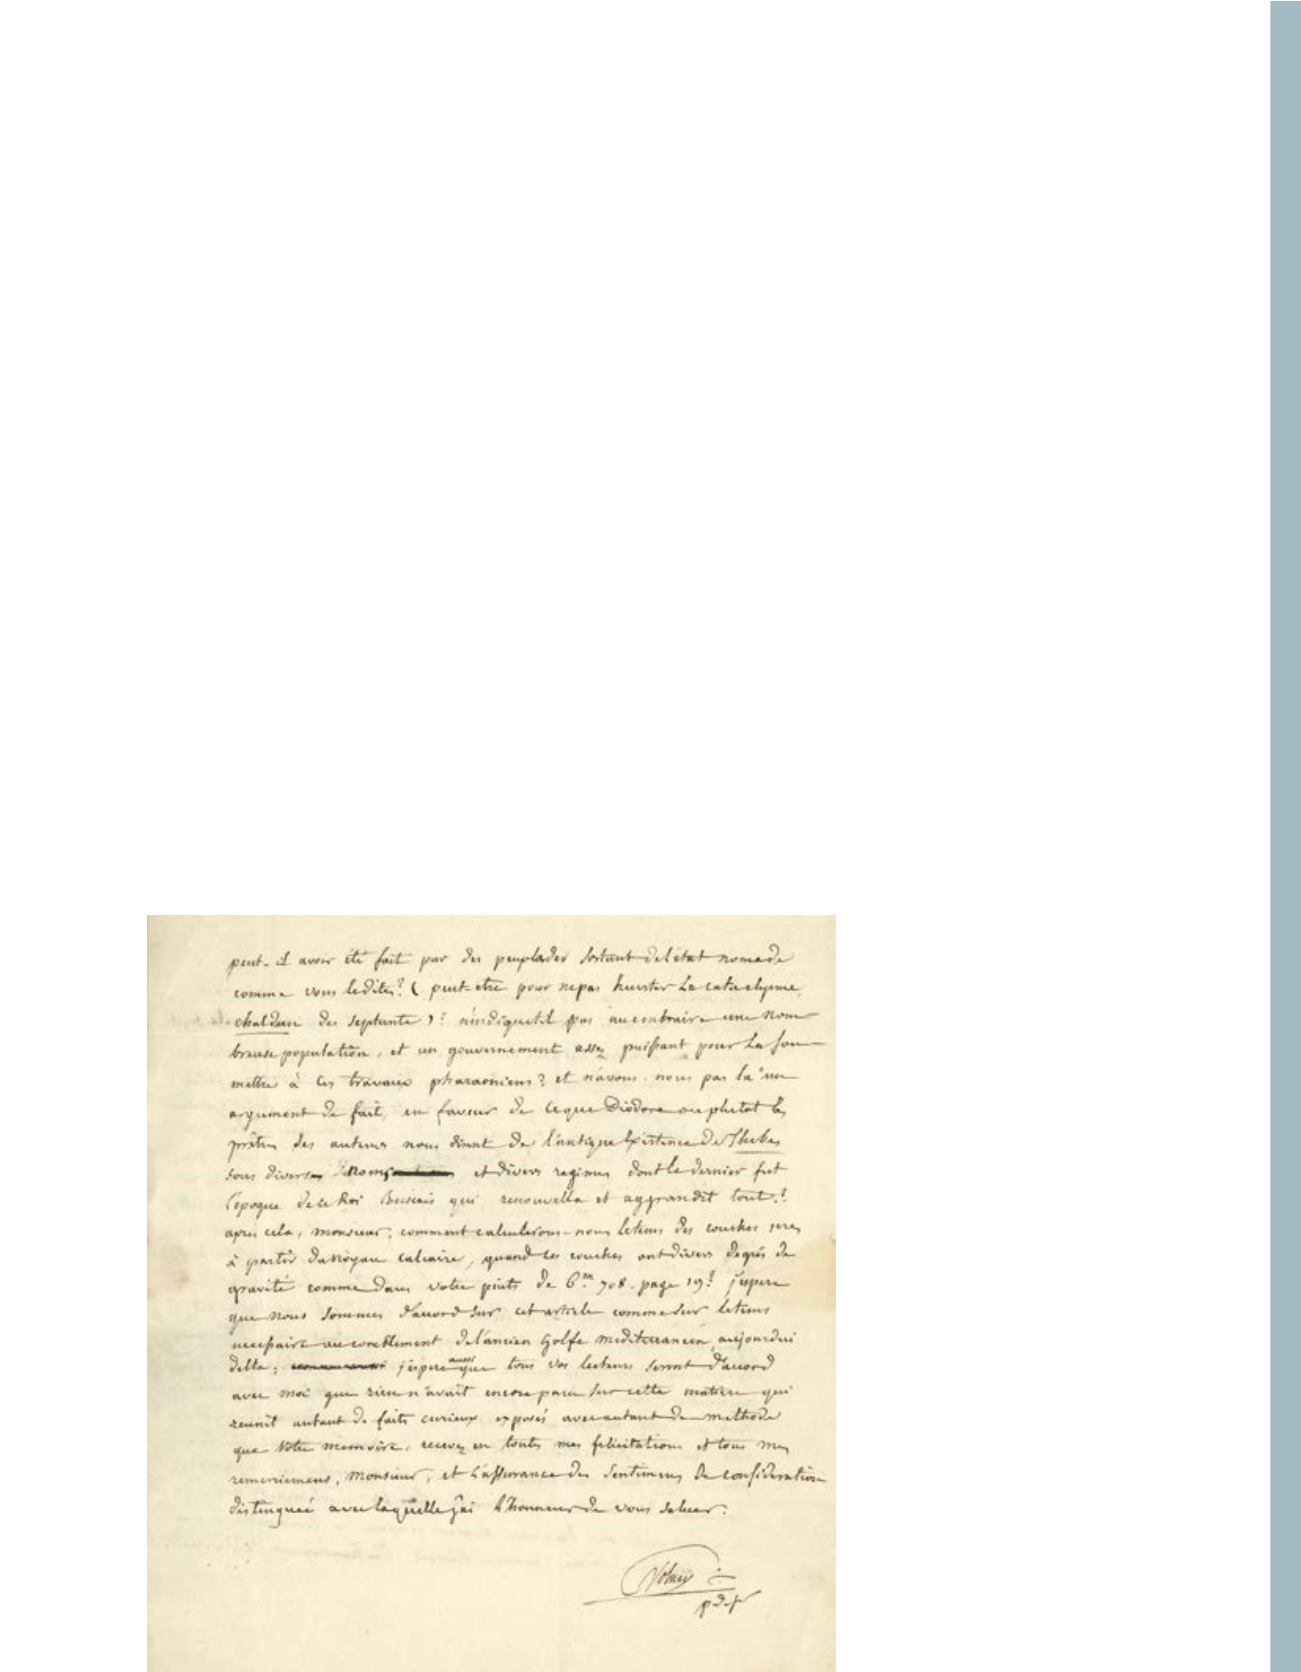 peut-il avoir été fait par des peuplades sortant del'état nomade
comme vous ledites? ( peut-etre pour nepas heurter La cataclysme
chaldeen des septante )? n'indiquetil pas aucontraire une nom-
breuse population, et un gouvernement assez puissant pour La sou-
mettre à ces travaux pharaoniens? et n'avons-nous pas là un
argument de fait, en faveur de ceque Diodore ou plutot les
prêtres ses auteurs nous disent de l'antique Existence de Thebes
sous divers noms et divers regimes dont le dernier fut
l'epoque de ce Roi Busiris qui renouvella et aggrandit tout?
après cela, monsieur, comment calculerons-nous letems des couches
à partir du Noyau calcaire, quand ces couches ont divers degrés de
gravité comme dans votre puits de 6.m 708. page 19? j'espere
que nous sommes d'accord sur cet article comme sur letems
necessaire au comblement de l'ancien Golfe mediterraneen, aujourdui
delta; j'espere aussi que tous vos lecteurs seront d'accord
avec moi que rien n'avait encore paru sur cette matiere qui
reunit autant de faits curieux exposés avec autant de methode
que Votre memoire. recevez en toutes mes felicitations et tous mes
remerciemens, monsieur, et L'assurance des sentimens de consideration
distinguée avec laquelle j'ai l'honneur de vous saluer.
Volney
p de fr